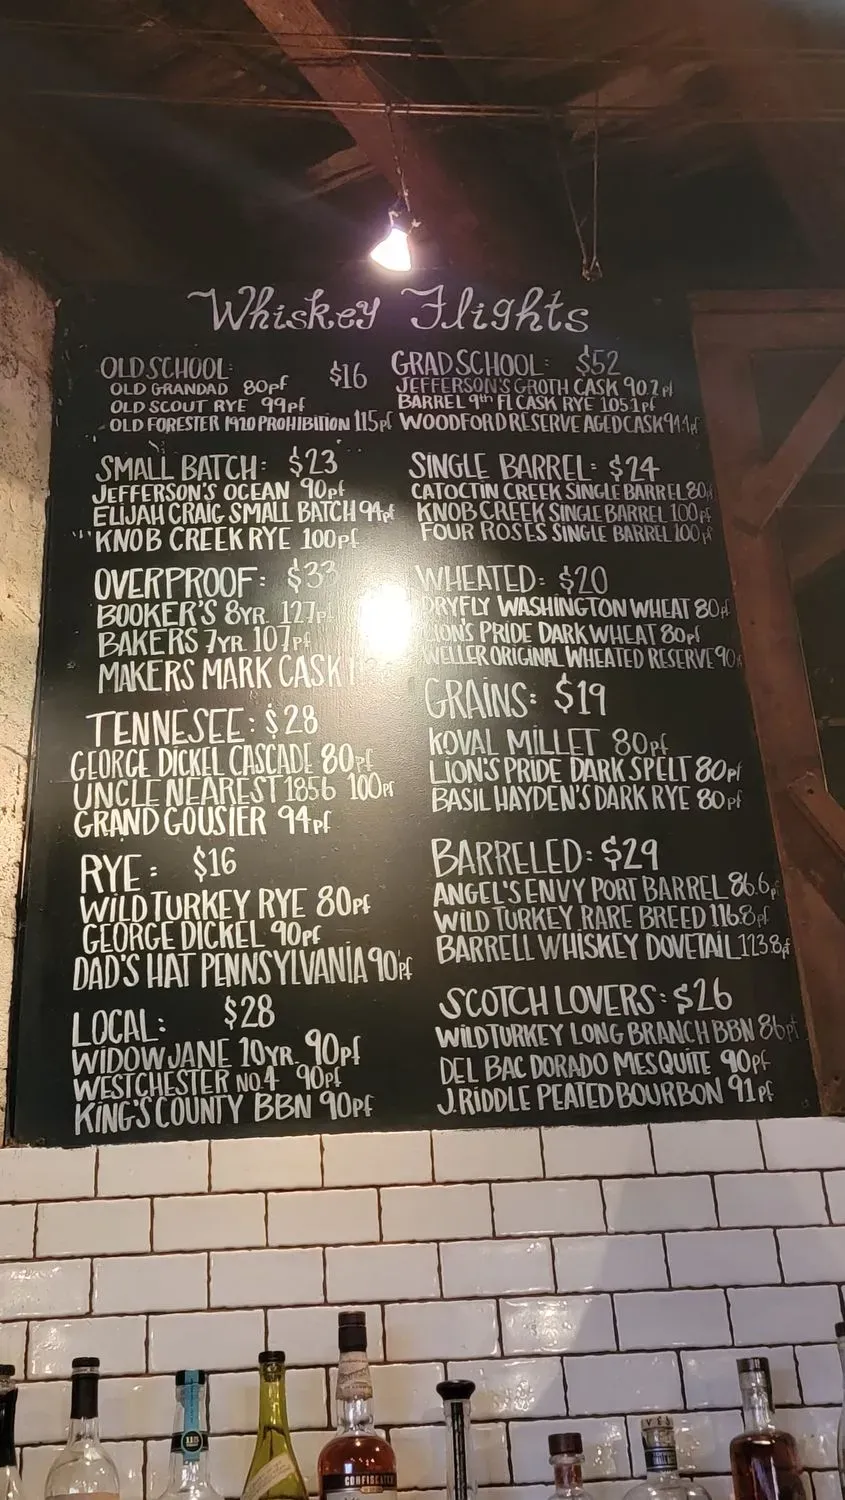 Whiskey Flights
OLD SCHOOL: $16
OLD GRANDAD 80pf
OLD SCOUT RYE 99pf
OLD FORESTER 1920 PROHIBITION 115pf
SMALL BATCH: $23
JEFFERSON'S OCEAN 90pf
ELIJAH CRAIG SMALL BATCH 94pf
KNOB CREEK RYE 100pf
OVERPROOF: $33
BOOKER'S 8YR. 127pf
BAKERS 7YR. 107pf
MAKERS MARK CASK
TENNESEE: $28
GEORGE DICKEL CASCADE 80pf
UNCLE NEAREST 1856 100pf
GRAND GOUSIER 94pf
RYE: $16
WILD TURKEY RYE 80pf
GEORGE DICKEL 90pf
DAD'S HAT PENNSYLVANIA 90pf
LOCAL: $28
WIDOW JANE 10YR. 90pf
WESTCHESTER NO.4 90pf
KING'S COUNTY BBN 90pf
GRAD SCHOOL: $52
JEFFERSON'S GROTH CASK 90.2pf
BARREL 9th FL CASK RYE 105.1pf
WOODFORD RESERVE AGED CASK
SINGLE BARREL: $24
CATOCTIN CREEK SINGLE BARREL 80pf
KNOB CREEK SINGLE BARREL 100pf
FOUR ROSES SINGLE BARREL 100pf
WHEATED: $20
DRYFLY WASHINGTON WHEAT 80pf
LION'S PRIDE DARK WHEAT 80pf
WELLER ORIGINAL WHEATED RESERVE 90
GRAINS: $19
KOVAL MILLET 80pf
LION'S PRIDE DARK SPELT 80pf
BASIL HAYDEN'S DARK RYE 80pf
BARRELED: $29
ANGEL'S ENVY PORT BARREL 86.6pf
WILD TURKEY RARE BREED 116.8pf
BARRELL WHISKEY DOVETAIL 123.8pf
SCOTCH LOVERS: $26
WILD TURKEY LONG BRANCH BBN 86pf
DEL BAC DORADO MESQUITE 90pf
J. RIDDLE PEATED BOURBON 91pf